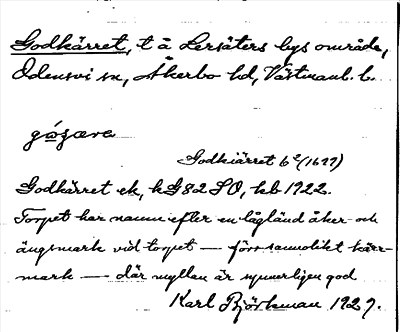 Godkärret, t å Lersäters bys område,
Odensvi sn, Åkerbo hd, Västmanl. l.
Godkiärret 6 2/(1677)
Godkärret ek, kG82 SO, hb 1922.
Torpet har namn efter en lågländ åker- och
ängsmark vid torpet — förr sannolikt kärr-
mark — där myllan är synnerligen god
Karl Björkman 1927.